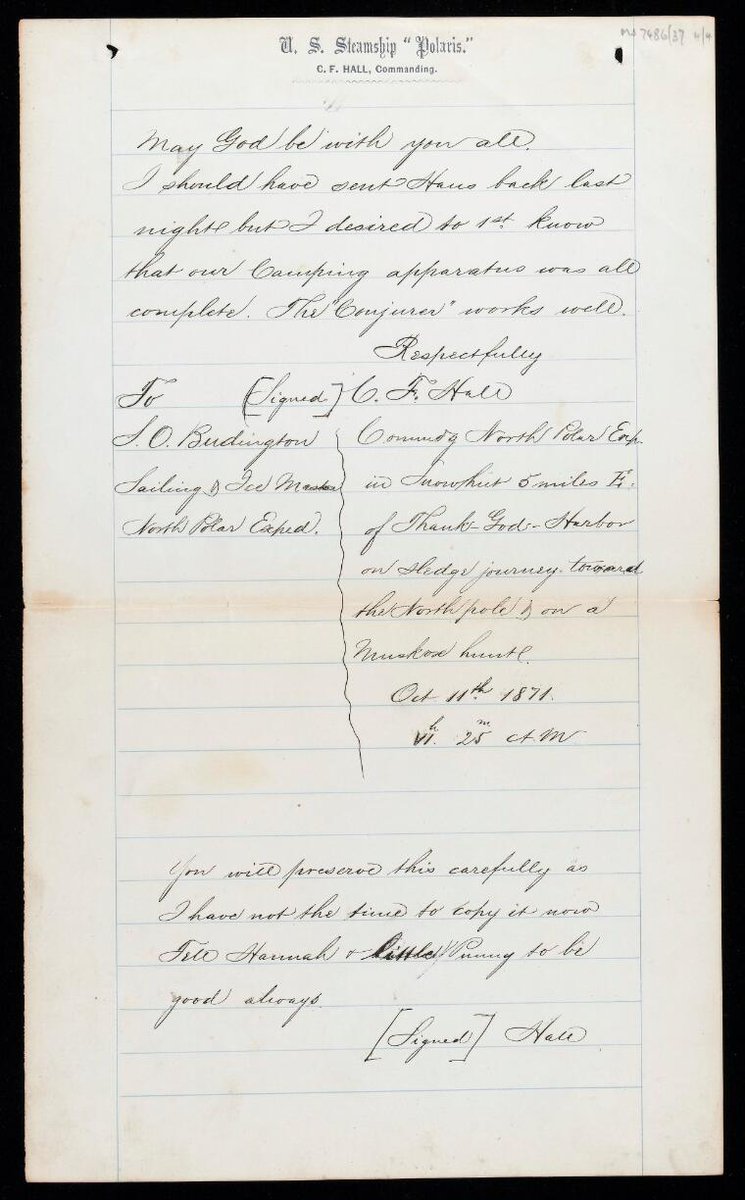 ms 7486/37 4/4
U. S. Steamship "Polaris."
C. F. HALL, Commanding.
May God be with you all.
I should have sent Hans back last
night but I desired to 1st. know
that our Camping apparatus was all
complete. The "Conjurer" works well.
Respectfully
To [Signed] C. F. Hall
S. O. Budington
Sailing & Ice Master
North Polar Exped.
Commdg North Polar Exp.
in Snowhut 5 miles E.
of Thank-God-Harbor
on sledge journey toward
the North pole & on a
Muskox hunt.
Oct 11th. 1871.
VI.h 25m A.M.
You will preserve this carefully as
I have not the time to copy it now
Tell Hannah & little Punny to be
good always.
[Signed] Hall